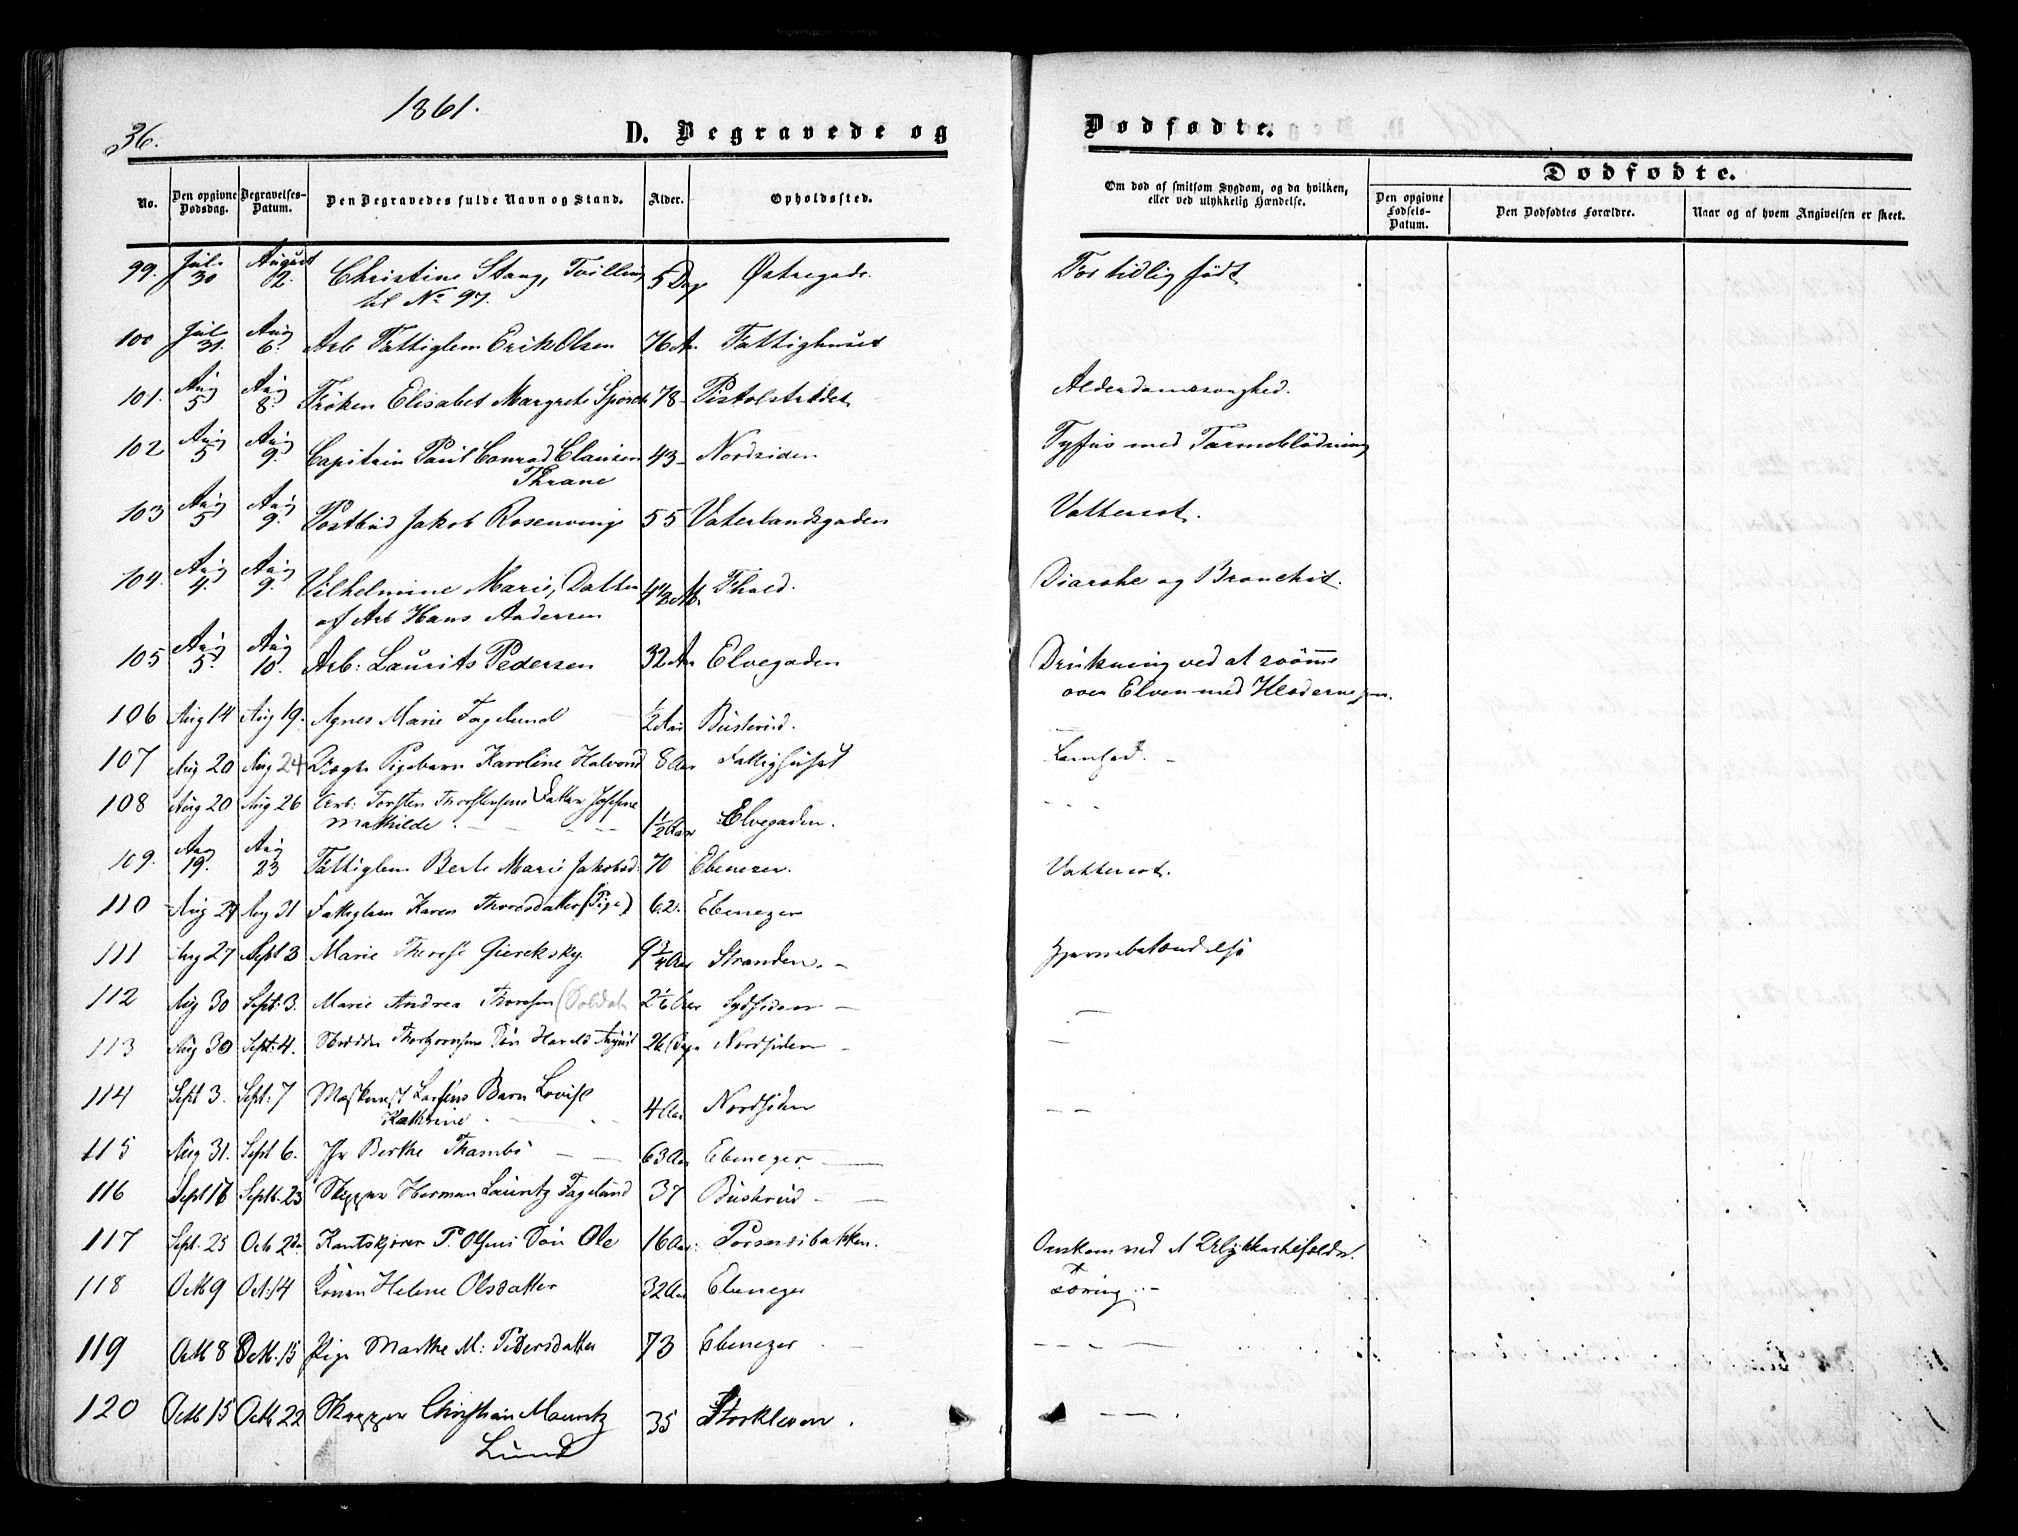 1861.
36.
D. Begravede og
Dødfødte.
No.
Den opgivne Dødsdag.
Begravelses-Datum.
Den Begravedes fulde Navn og Stand.
Alder.
Opholdssted.
Om død af smitsom Sygdom, og da hvilken, eller ved ulykkelig Hændelse.
Dødfødte.
Den opgivne Fødsels-Datum.
Den Dødfødtes Forældre.
Naar og af hvem Angivelsen er skeet.
99. Juli 30 August 02. Christine Stang, Tvilling 5 Dag Østregade. For tidlig födt
til No 97.
100 Juli 31. Aug 6. Arb Fattiglem Erik Olsen 76 A. Fattighuset
101. Aug 5 Aug 8. Fröken Elisabet Margrete 78 Pistolstrædet Alderdomssvaghed.
102 Aug 5 Aug 9. Capitain Paul Conrad Clausen 43 Nordsiden Tyfus med Tarmeblödning
Thrane
103 Aug 5 Aug 9. Postbud Jakob Rosenvinge 55 Vaterlandsgaden Vattersot.
104. Aug 4. Aug 9. Vilhelmine Marie, Datter Diarohe og Bronchit.
af Arb Hans Andersen
105 Aug 5. Aug 10. Arb: Laurits Pedersen 32 Aar Elvegaden Drukning ved at svömme
over Elven med Klæderne paa.
106 Aug 14 Aug 19. Agnes Marie Fagelund ½ Aar Busterud.
107 Aug 20 Aug 24 Pigebarn Karoline Halvorsd 8 Aar Fattighuset
108 Aug 20 Aug 26 Arb: Torsten Thorstensens Datter Josefine
Mathilde 1½ Aar Elvegaden.
109. Aug 19. Aug 23 Fattiglem Berte Marie Jakobsd. 70 Ebenezer. Vattersot.
110 Aug 27 Aug 31 Fattiglem Karen Thoresdatter (Pige) 62. Ebenezer
111 Aug 27 Sept 3 Marie Therese 9¾ Aar Stranden. Hjernebetændelse
112 Aug 30 Sept: 3. Marie Andrea Thoresen (Soldat 2 1/6 Aar Sydsiden
113 Aug 30 Sept: 4. Thorbjørnsens Sön Harald August 26 Dage Nordsiden
114 Sept 3. Sept: 7 Larsens Barn Lovise
Kathrine 4 Aar Nordsiden
115 Aug 31. Sept 6. Berthe Thambs 63 Aar Ebenezer.
116 Sept 17 Septb. 23 Skipper Herman Lauritz Fagelund 37 Buskrud
117 Sept. 25 Octb 2 Kantskjører P. Olsens Sön Ole 16 Aar: Omkom ved et Ulykkestilfælde.
118 Octb 9 Oct: 14 Konen Helene Olsdatter 32 Aar Ebenezer Tæring.
119 Octb 8 Octb: 15 Pige Marthe M: Pedersdatter 73 Ebenezer
120 Octb 15 Octb 22 Skipper Christian Mauritz 35 Storkleven.
Lund